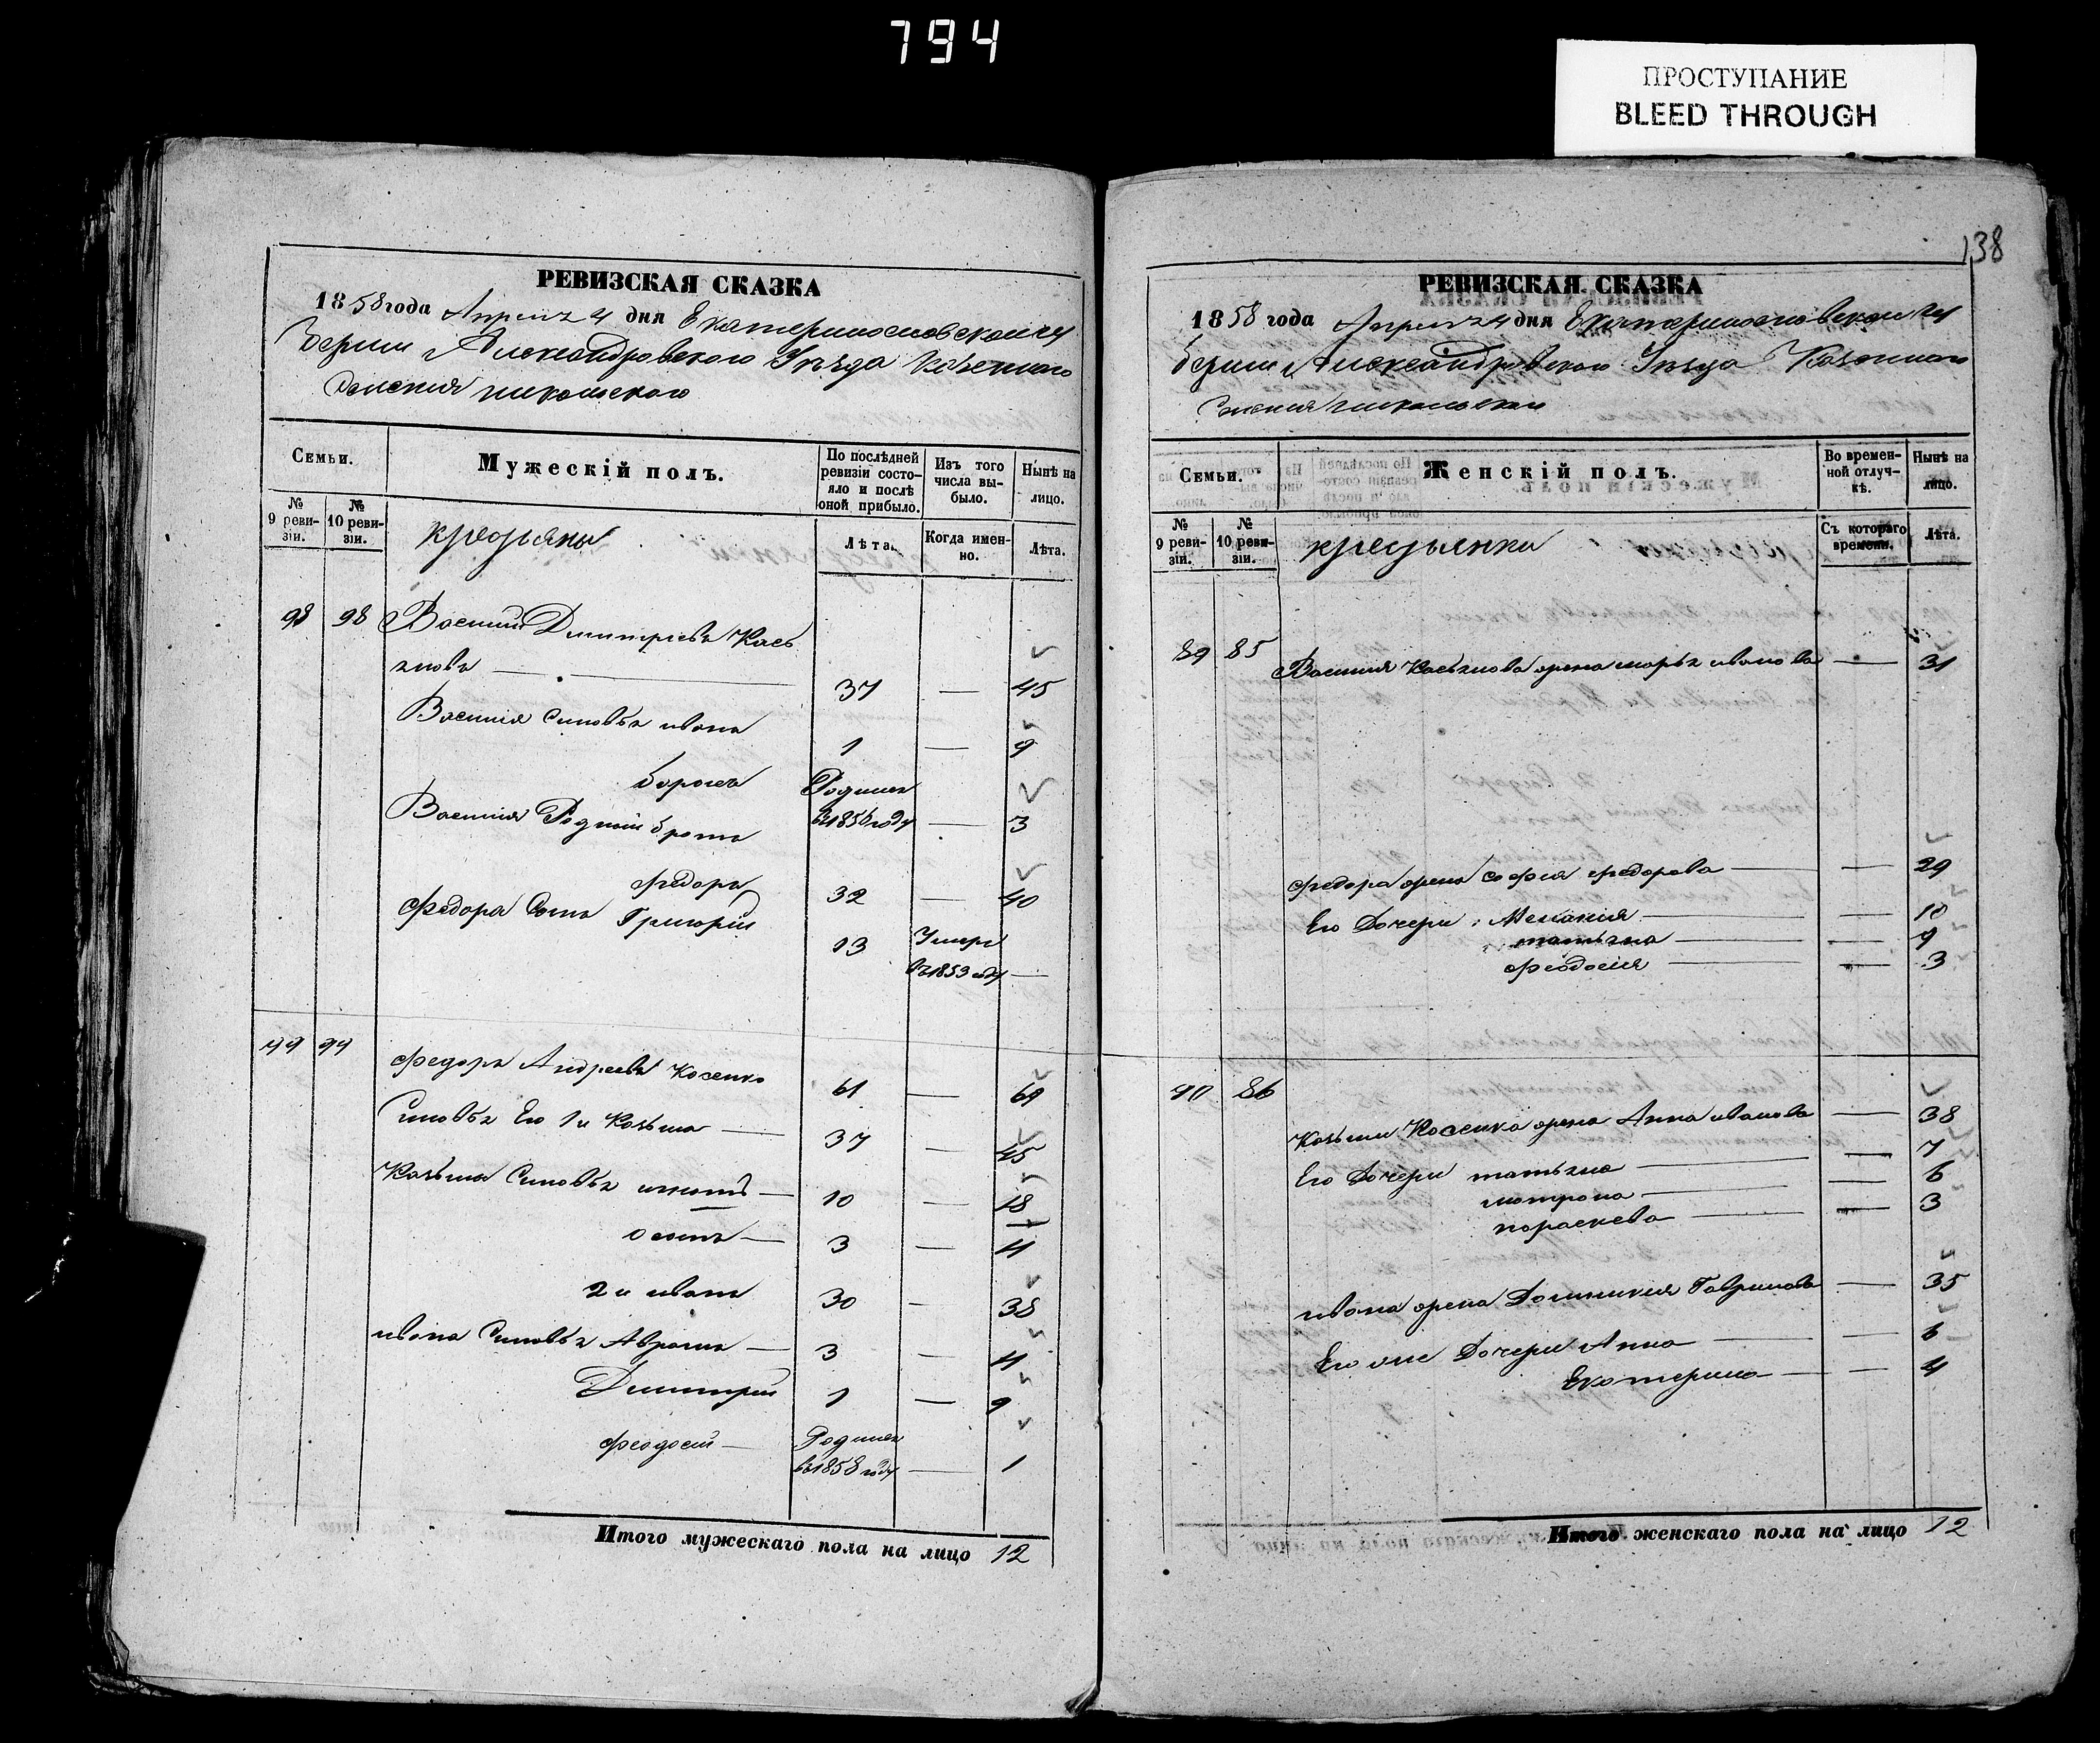 794
ПРОСТУПАНИЕ
BLEED THROUGH
РЕВИЗСКАЯ СКАЗКА
1858 года Апреля 4 дня Екатеринославской гу
бернии Александровского Уезда Казенного
Селения никольского
Семьи.
Мужескій полъ.
По послѣдней ревизіи состояло и послѣ оной прибыло.
Изъ того числа выбыло.
Нынѣ на лицо.
№ 9 ревизіи.
№ 10 ревизіи.
Лѣта.
Когда именно.
Лѣта.
98 98 Василий Дмитриевъ Кась
яновъ 37 — 45
Василия Сыновья ивана 1 — 9
Родился
въ 1856 году — 3
Василия Родный братъ
федоръ 32 — 40
федора Сынъ Григорий 13 Умеръ
въ 1853 году —
99 99 федоръ Андреевъ Косенко 61 — 69
Сыновья Его 1й Козьма — 37 — 45
Козьмы Сыновья игнатъ — 10 — 18
осипъ — 3 — 11
2й иванъ 30 — 38
ивана Сыновья Аврамъ — 3 — 11
Димитрий 1 — 9
феодосий — Родился
въ 1858 году — 1
Итого мужескаго пола на лицо 12
138
РЕВИЗСКАЯ СКАЗКА
1858 года Апреля 4 дня Екатеринославской гу
бернии Александровского Уезда Казенного
Селения никольского
Семьи.
Женскій полъ.
Во временной отлучкѣ.
Нынѣ на лицо.
№ 9 ревизіи.
№ 10 ревизіи.
Съ котораго времени.
Лѣта.
89 85 Василия Касьянова жена марья иванова — 31
федора жена софия федорова — — 29
Его Дочери: Мелания — — 10
татьяна — — 9
феодосия — — 3
90 86
Козьмы Косенка жена Анна иванова — 38
Его Дочери татьяна — — 7
мотрона — — 6
параскева — — 3
ивана жена Домникия Гаврилова — 35
Его же Дочери Анна — — 6
Екатерина — — 4
Итого женскаго пола на лицо 12